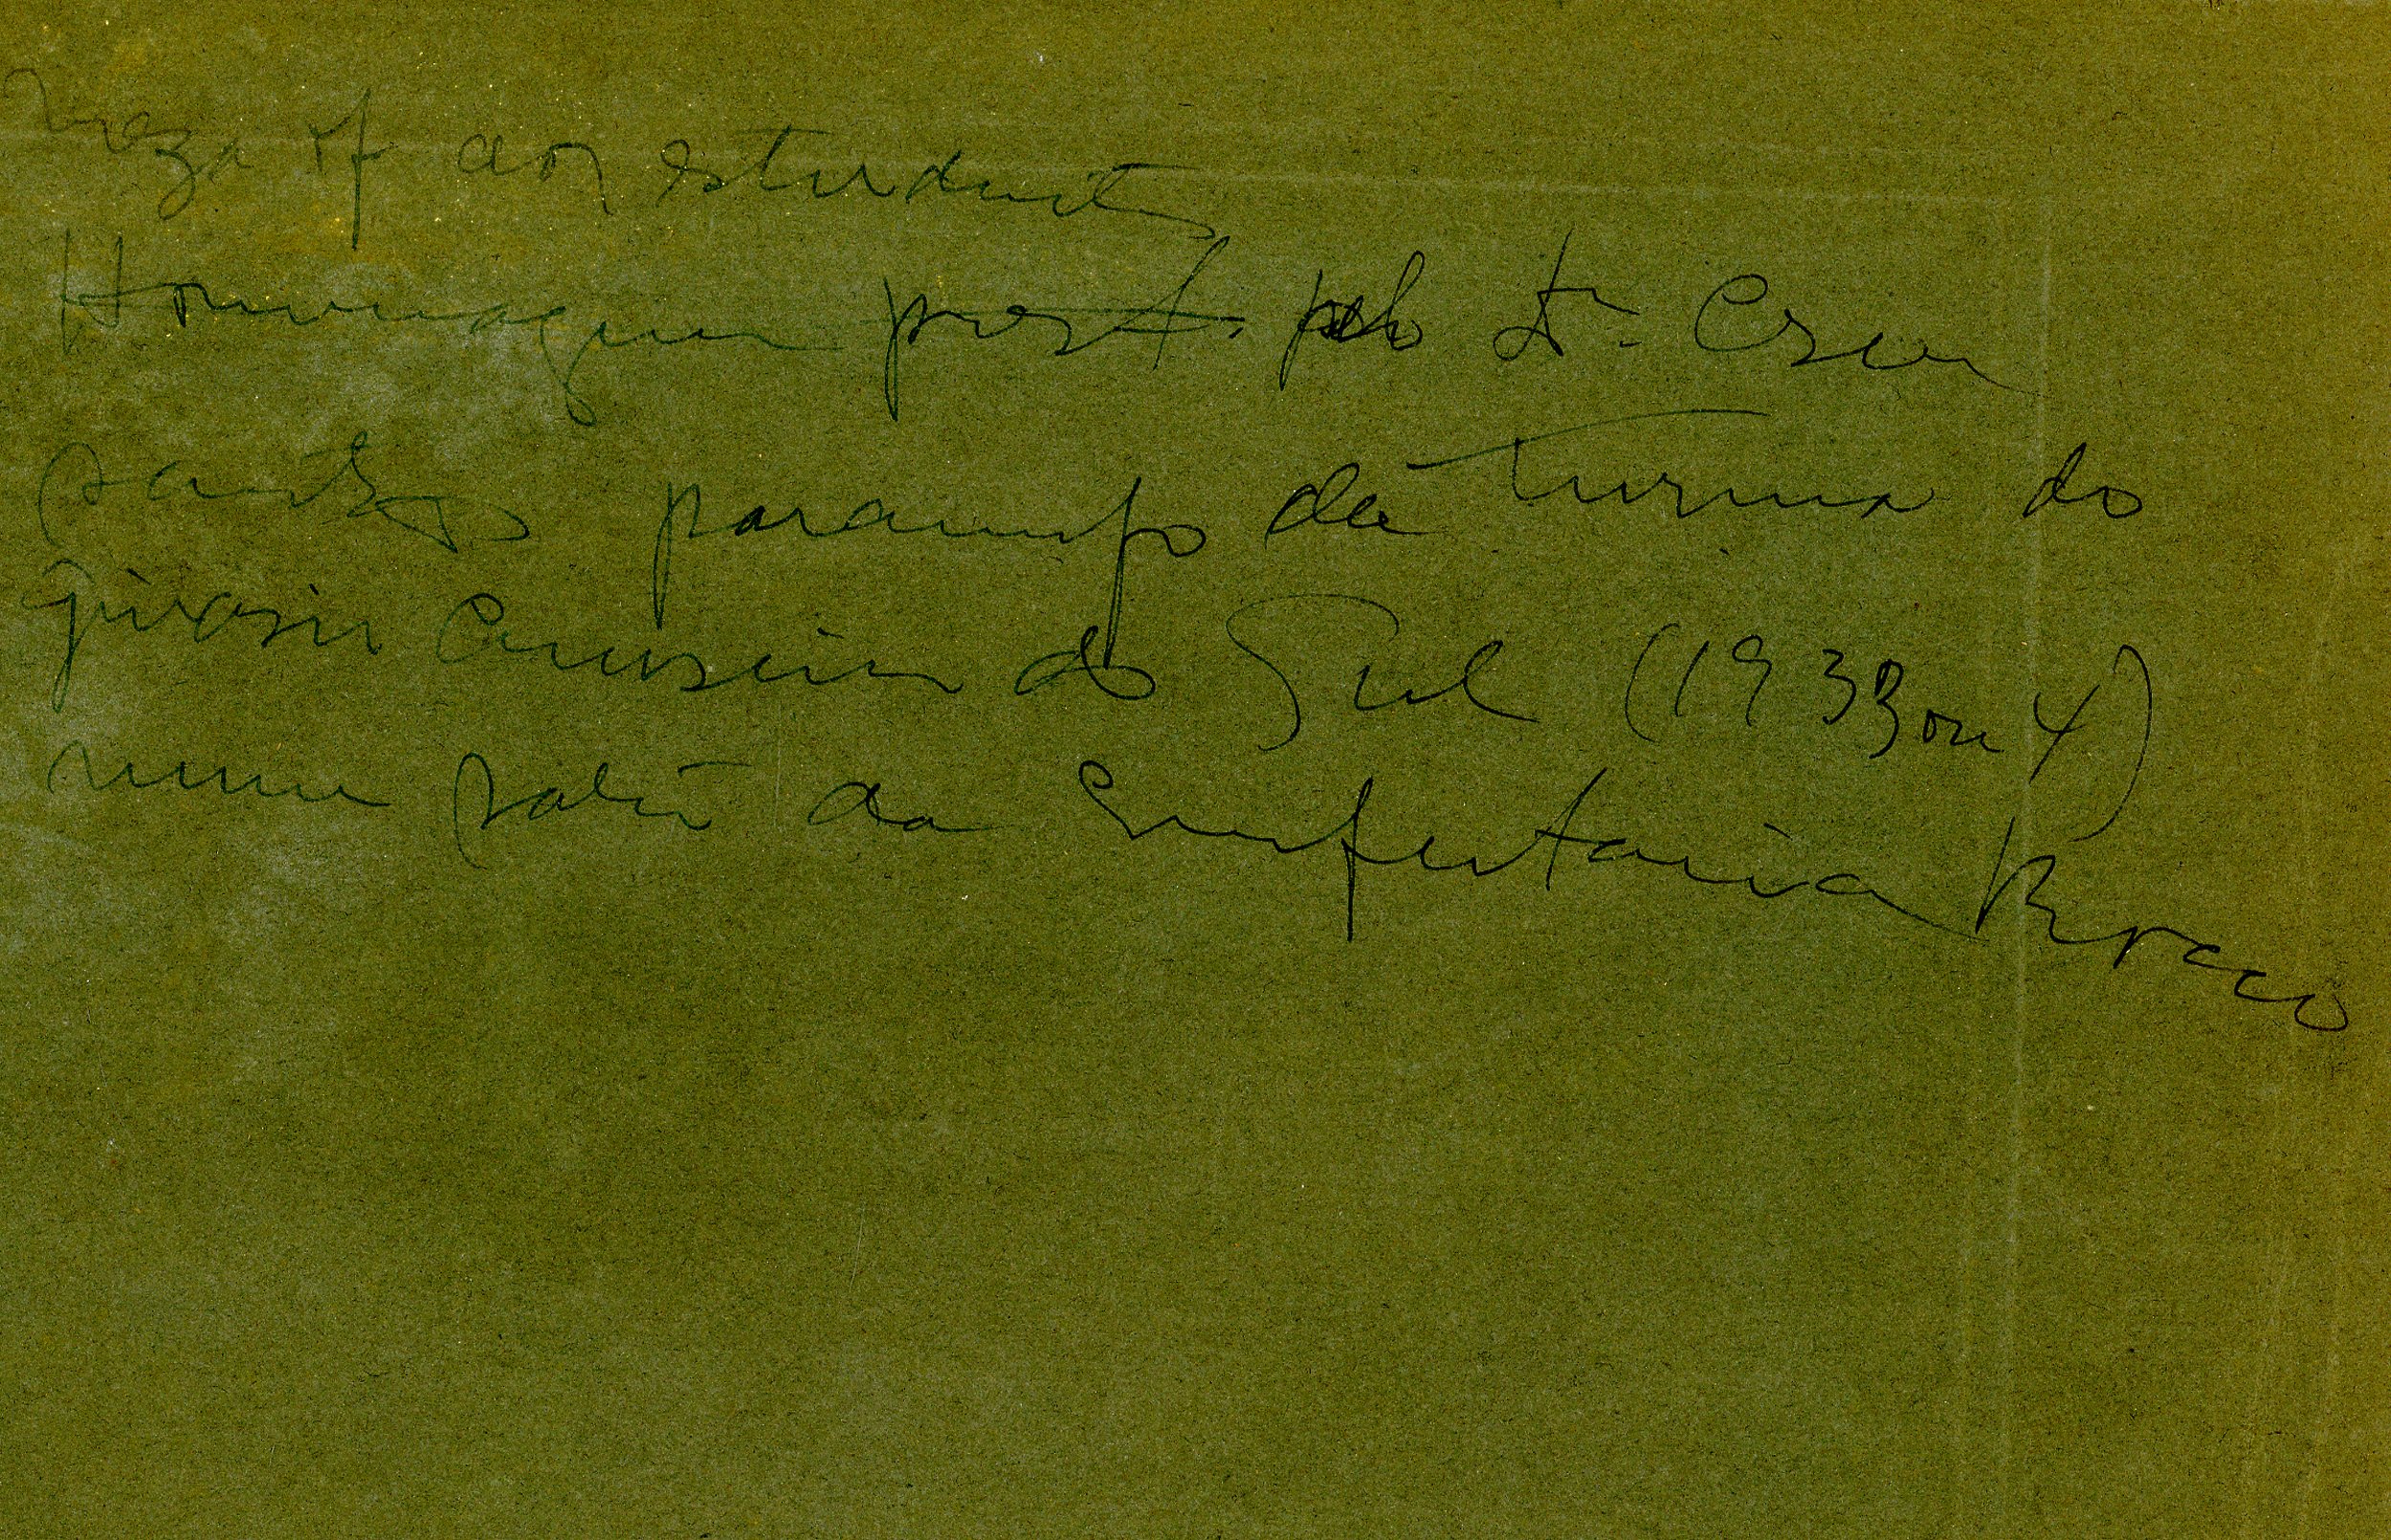 Mesa of aos estudantes
Homenagem prest. pelo Dr. Cesar
Santos paraninfo da turma do
Ginasio Cruzeiro do Sul (1933 ou 4)
num salão da Confeitaria Rocco